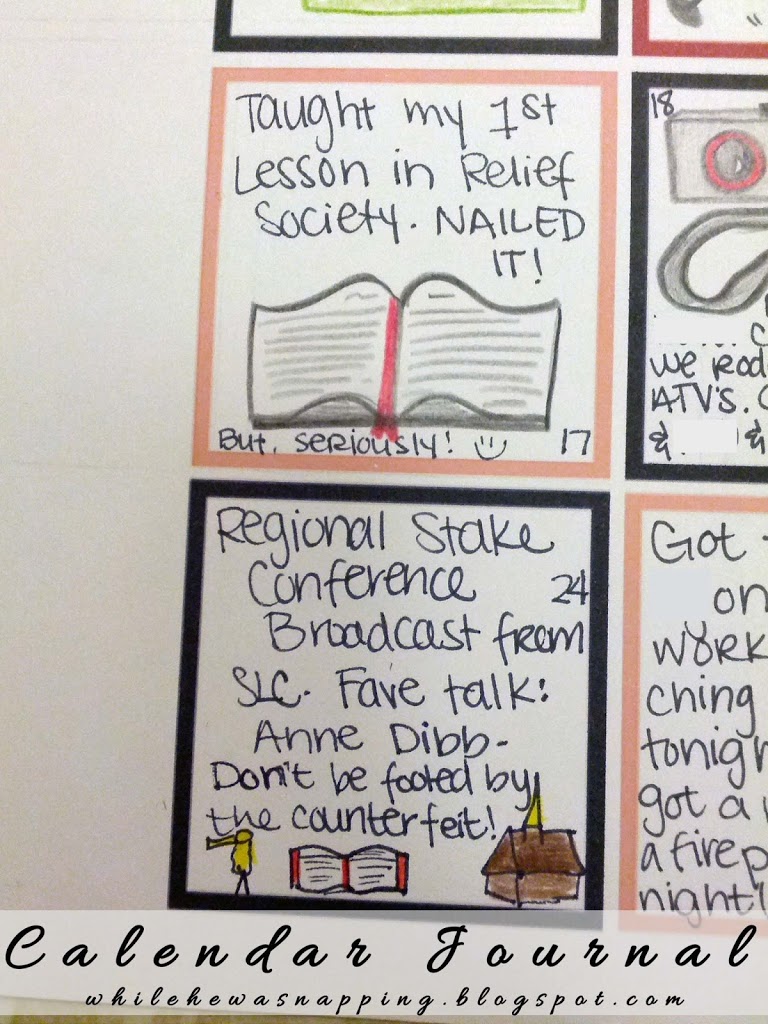 Taught my 1st
Lesson in Relief
Society. NAILED
IT!
But, seriously! 17
18
we rod
ATV'S.
&
&
Regional Stake
Conference 24
Broadcast from
SLC. Fave talk:
Anne Dibb-
Don't be fooled by
the counterfeit!
Got
on
work
ching
tonigh
got a
a firep
night
Calendar Journal
whilehewasnapping.blogspot.com